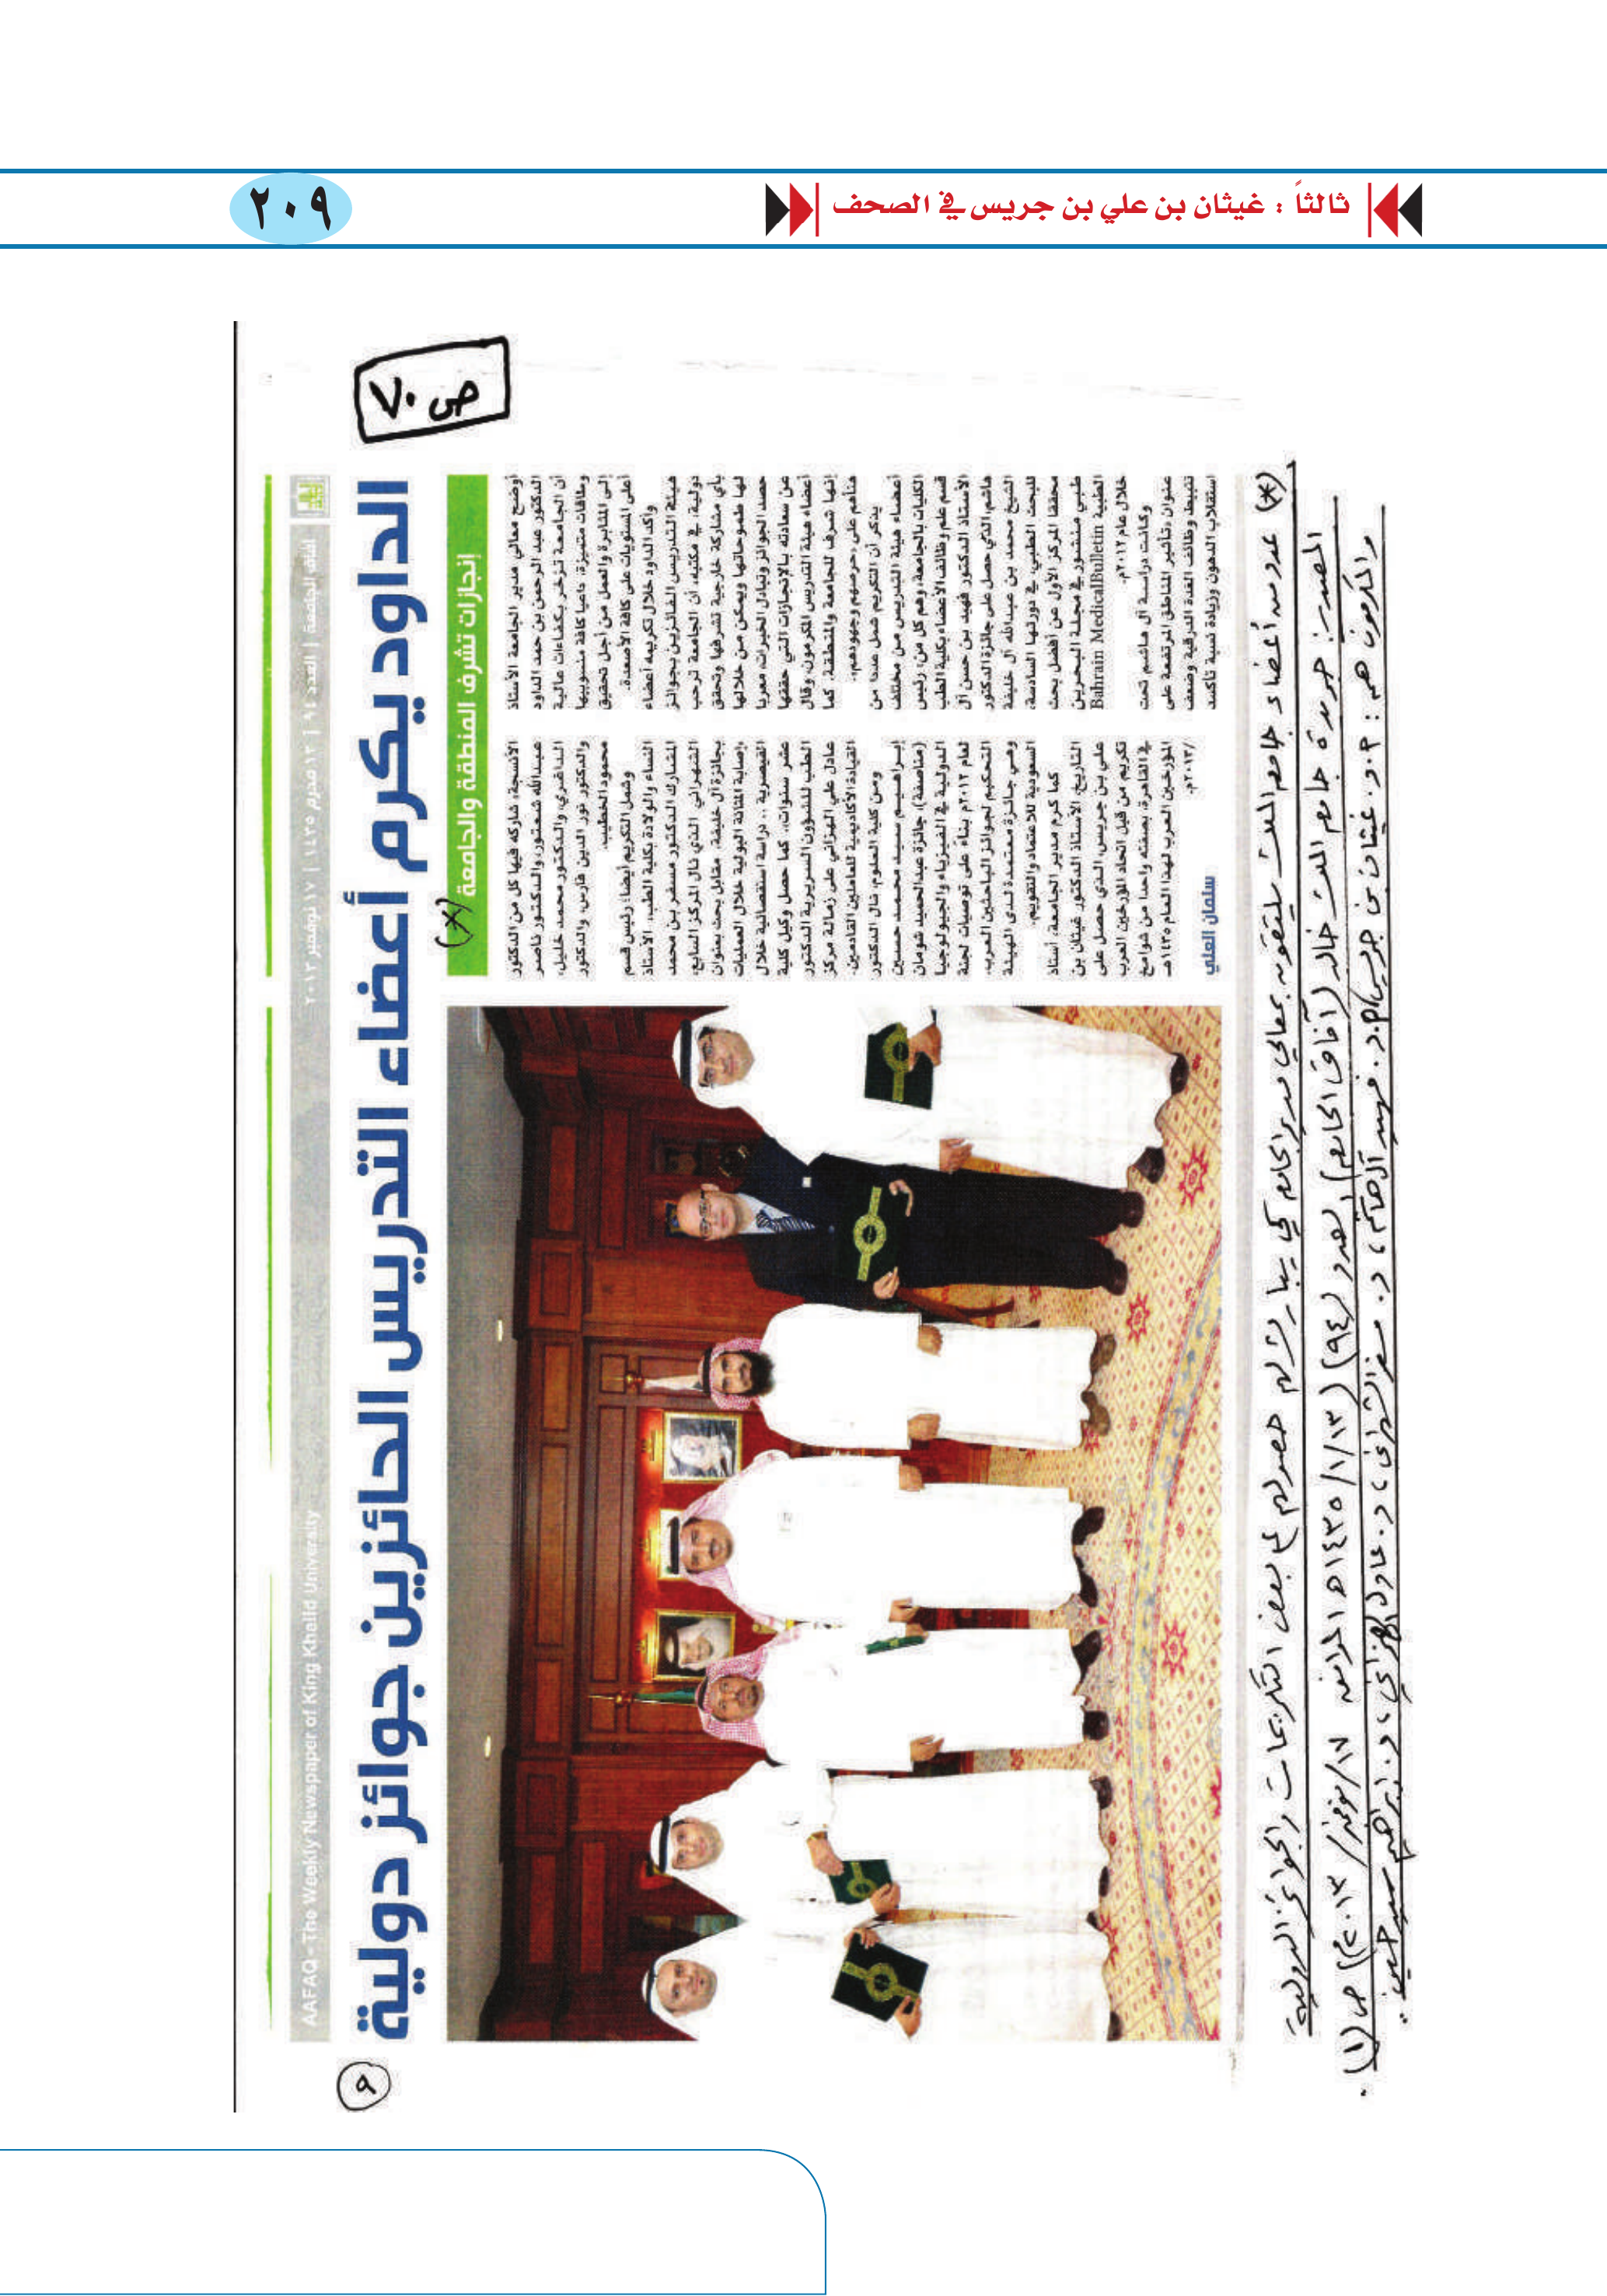 ثالثاً : غيثان بن علي بن جريس في الصحف
٢٠٩
ص ٧٠
آفاق الجامعة | العدد ٩٤ | ١٣ محرم ١٤٣٥ | ١٧ نوفمبر ٢٠١٣
AAFAQ - The Weekly Newspaper of King Khalid University
٩
الداود يكرم أعضاء التدريس الحائزين جوائز دولية
إنجازات تشرف المنطقة والجامعة
(*)
أوضح معالي مدير الجامعة الأستاذ
الدكتور عبد الرحمن بن حمد الداود
أن الجامعة تزخر بكفاءات عالية
وطاقات متميزة، داعيا كافة منسوبيها
إلى المثابرة والعمل من أجل تحقيق
أعلى المستويات على كافة الأصعدة.
وأكد الداود خلال تكريمه أعضاء
هيئة التدريس الفائزين بجوائز
دولية، في مكتبه، أن الجامعة ترحب
بأي مشاركة خارجية تشرفها وتحقق
لها طموحاتها ويمكن من خلالها
حصد الجوائز وتبادل الخبرات، معربا
عن سعادته بالإنجازات التي حققها
أعضاء هيئة التدريس المكرمون، وقال
إنها شرف للجامعة والمنطقة. كما
هنأهم على «حرصهم وجهودهم».
يذكر أن التكريم شمل عددا من
أعضاء هيئة التدريس من مختلف
الكليات بالجامعة، وهم كل من: رئيس
قسم علم وظائف الأعضاء بكلية الطب
الأستاذ الدكتور فهد بن حسن آل
هاشم، الذي حصل على جائزة الدكتور
الشيخ محمد بن عبدالله آل خليفة
للبحث الطبي، في دورتها السادسة،
محققا المركز الأول عن أفضل بحث
طبي منشور في مجلة البحرين
الطبية Bahrain MedicalBulletin
خلال عام ٢٠١٢م.
وكانت دراسة آل هاشم تحت
عنوان «تأثير المناطق المرتفعة على
تثبيط وظائف الغدة الدرقية وضعف
استقلاب الدهون وزيادة نسبة تأكسد
الأنسجة، شاركه فيها كل من الدكتور
عبدالله شعتور، والدكتور ناصر
الداغري، والدكتور محمد خليل،
والدكتور نور الدين فارس، والدكتور
محمود الخطيب.
وشمل التكريم أيضا؛ رئيس قسم
النساء والولادة بكلية الطب، الأستاذ
المشارك الدكتور مسفر بن محمد
الشهراني الذي نال المركز السابع،
بجائزة آل خليفة، مقابل بحث بعنوان
«إصابة المثانة البولية خلال العمليات
القيصرية .. دراسة استقصائية خلال
عشر سنوات»، كما حصل وكيل كلية
الطب للشؤون السريرية الدكتور
عادل علي الهزاني على زمالة مركز
القيادة الأكاديمية للعاملين القادمين.
ومن كلية العلوم، نال الدكتور
إبراهيم سيد محمد حسين
(مناصفة)، جائزة عبدالحميد شومان
الدولية في الفيزياء والجيولوجيا
لعام ٢٠١٢م بناء على توصيات لجنة
التحكيم لجوائز الباحثين العرب،
وهي جائزة معتمدة لدى الهيئة
السعودية للاعتماد والتقويم.
كما كرم مدير الجامعة، أستاذ
التاريخ، الأستاذ الدكتور غيثان بن
علي بن جريس، الذي حصل على
تكريم من قبل اتحاد المؤرخين العرب
في القاهرة، بصفته واحدا من شوامخ
المؤرخين العرب لهذا العام ١٤٣٥هـ
/٢٠١٣م.
سلمان العلي
(*) عدد من أعضاء جامعة الملك يلتقون بمعالي مدير الجامعة كي يبارك لهم حصولهم على بعض التكريمات والجوائز الدولية
المصدر: جريدة جامعة الملك خالد (آفاق الجامعة) العدد (٩٤) (١٤٣٥/١/١٣هـ الموافق ١٧/نوفمبر/٢٠١٣م) ص (١).
والمكرمون هم : أ.د. غيثان بن جريس، أ.د. فهد آل هاشم، د. مسفر الشهراني، د. عادل الهزاني، د. ابراهيم سيد حسين.